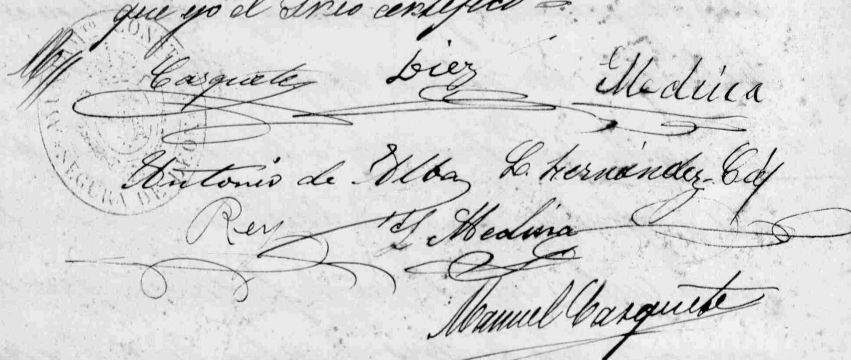 que yo el Srio certifico =
Casquete Diez Medina
Antonio de Alba L. Hernández-Cid
Rey F Medina
Manuel Casquete
SEGURA DE LEON